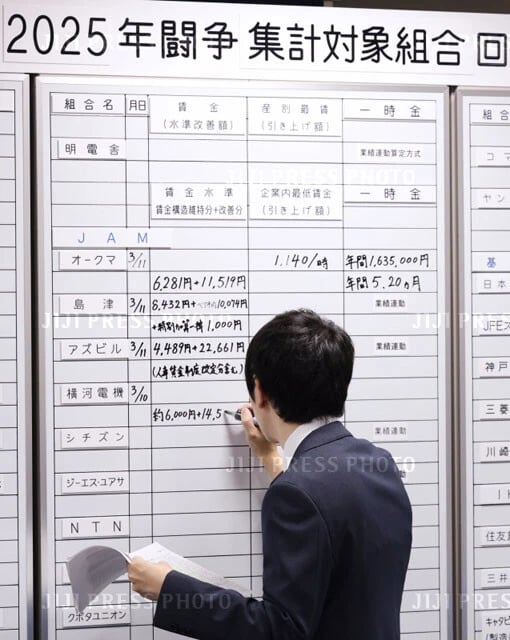 2025年闘争 集計対象組合 回
組合名 月日 賃金 産別最賃 一時金
(水準改善額) (引き上げ額)
明電舎 業績連動算定方式
賃金水準 企業内最低賃金 一時金
賃金構造維持分+改善分 (引き上げ額)
JAM
オークマ 3/11 1,140/時 年間1,635,000円
6,281円+11,519円 年間5.20ヵ月
島津 3/11 8,432円+ 10,074円 業績連動
1,000円
アズビル 3/11 4,489円+22,661円 業績連動
(人事賃金制度改定分含む)
横河電機 3/10
約6,000円+14,5
シチズン 業績連動
ジーエス・ユアサ
NTN
クボタユニオン
組合
コマ
ヤン
基
日本
JFEス
神戸
三菱
川崎
IH
住友
三井
キャタピ
(製造
JIJI PRESS PHOTO
JIJI PRESS PHOTO
JIJI PRESS PHOTO
JIJI PRESS PHOTO
JIJI PRESS PHOTO
JIJI PRESS PHOTO